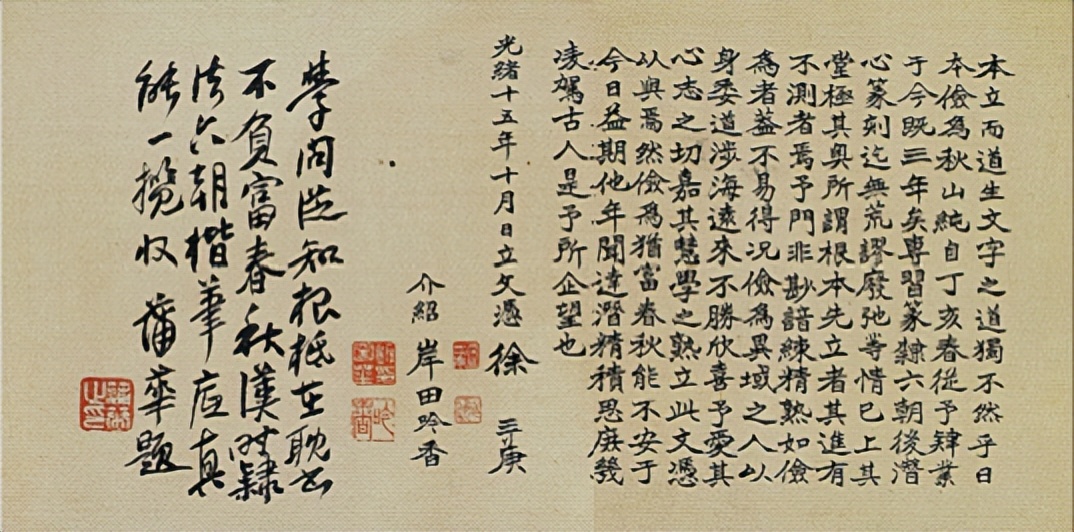 本立而道生文字之道獨不然乎日
本儉為秋山純自丁亥春從予肄業
于今既三年矣專習篆隸六朝後潛
心篆刻迄無荒謬廢弛等情已上其
堂極其奧所謂根本先立者其進有
不測者焉予門非尠諳練精熟如儉
為者蓋不易得況儉為異域之人以
身委道涉海遠來不勝欣喜予愛其
心志之切嘉其慧學之熟立此文憑
以與焉然儉為猶富春秋能不安于
今日益期他年聞達潛精積思庶幾
凌駕古人是予所企望也
光緒十五年十月日立文憑徐三庚
介紹 岸田吟香
學問從知根柢在耽書
不負富春秋漢時隸
法六朝楷筆底真
能一攬收 蒲華題